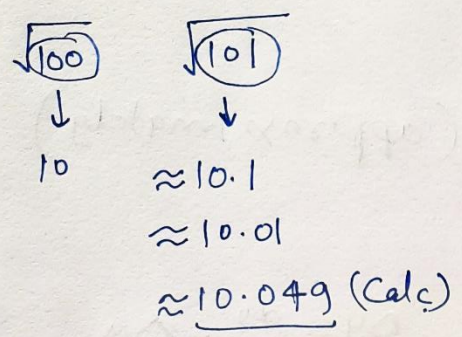 √100 √101
↓ ↓
10 ≈10.1
≈10.01
≈10.049 (Calc)